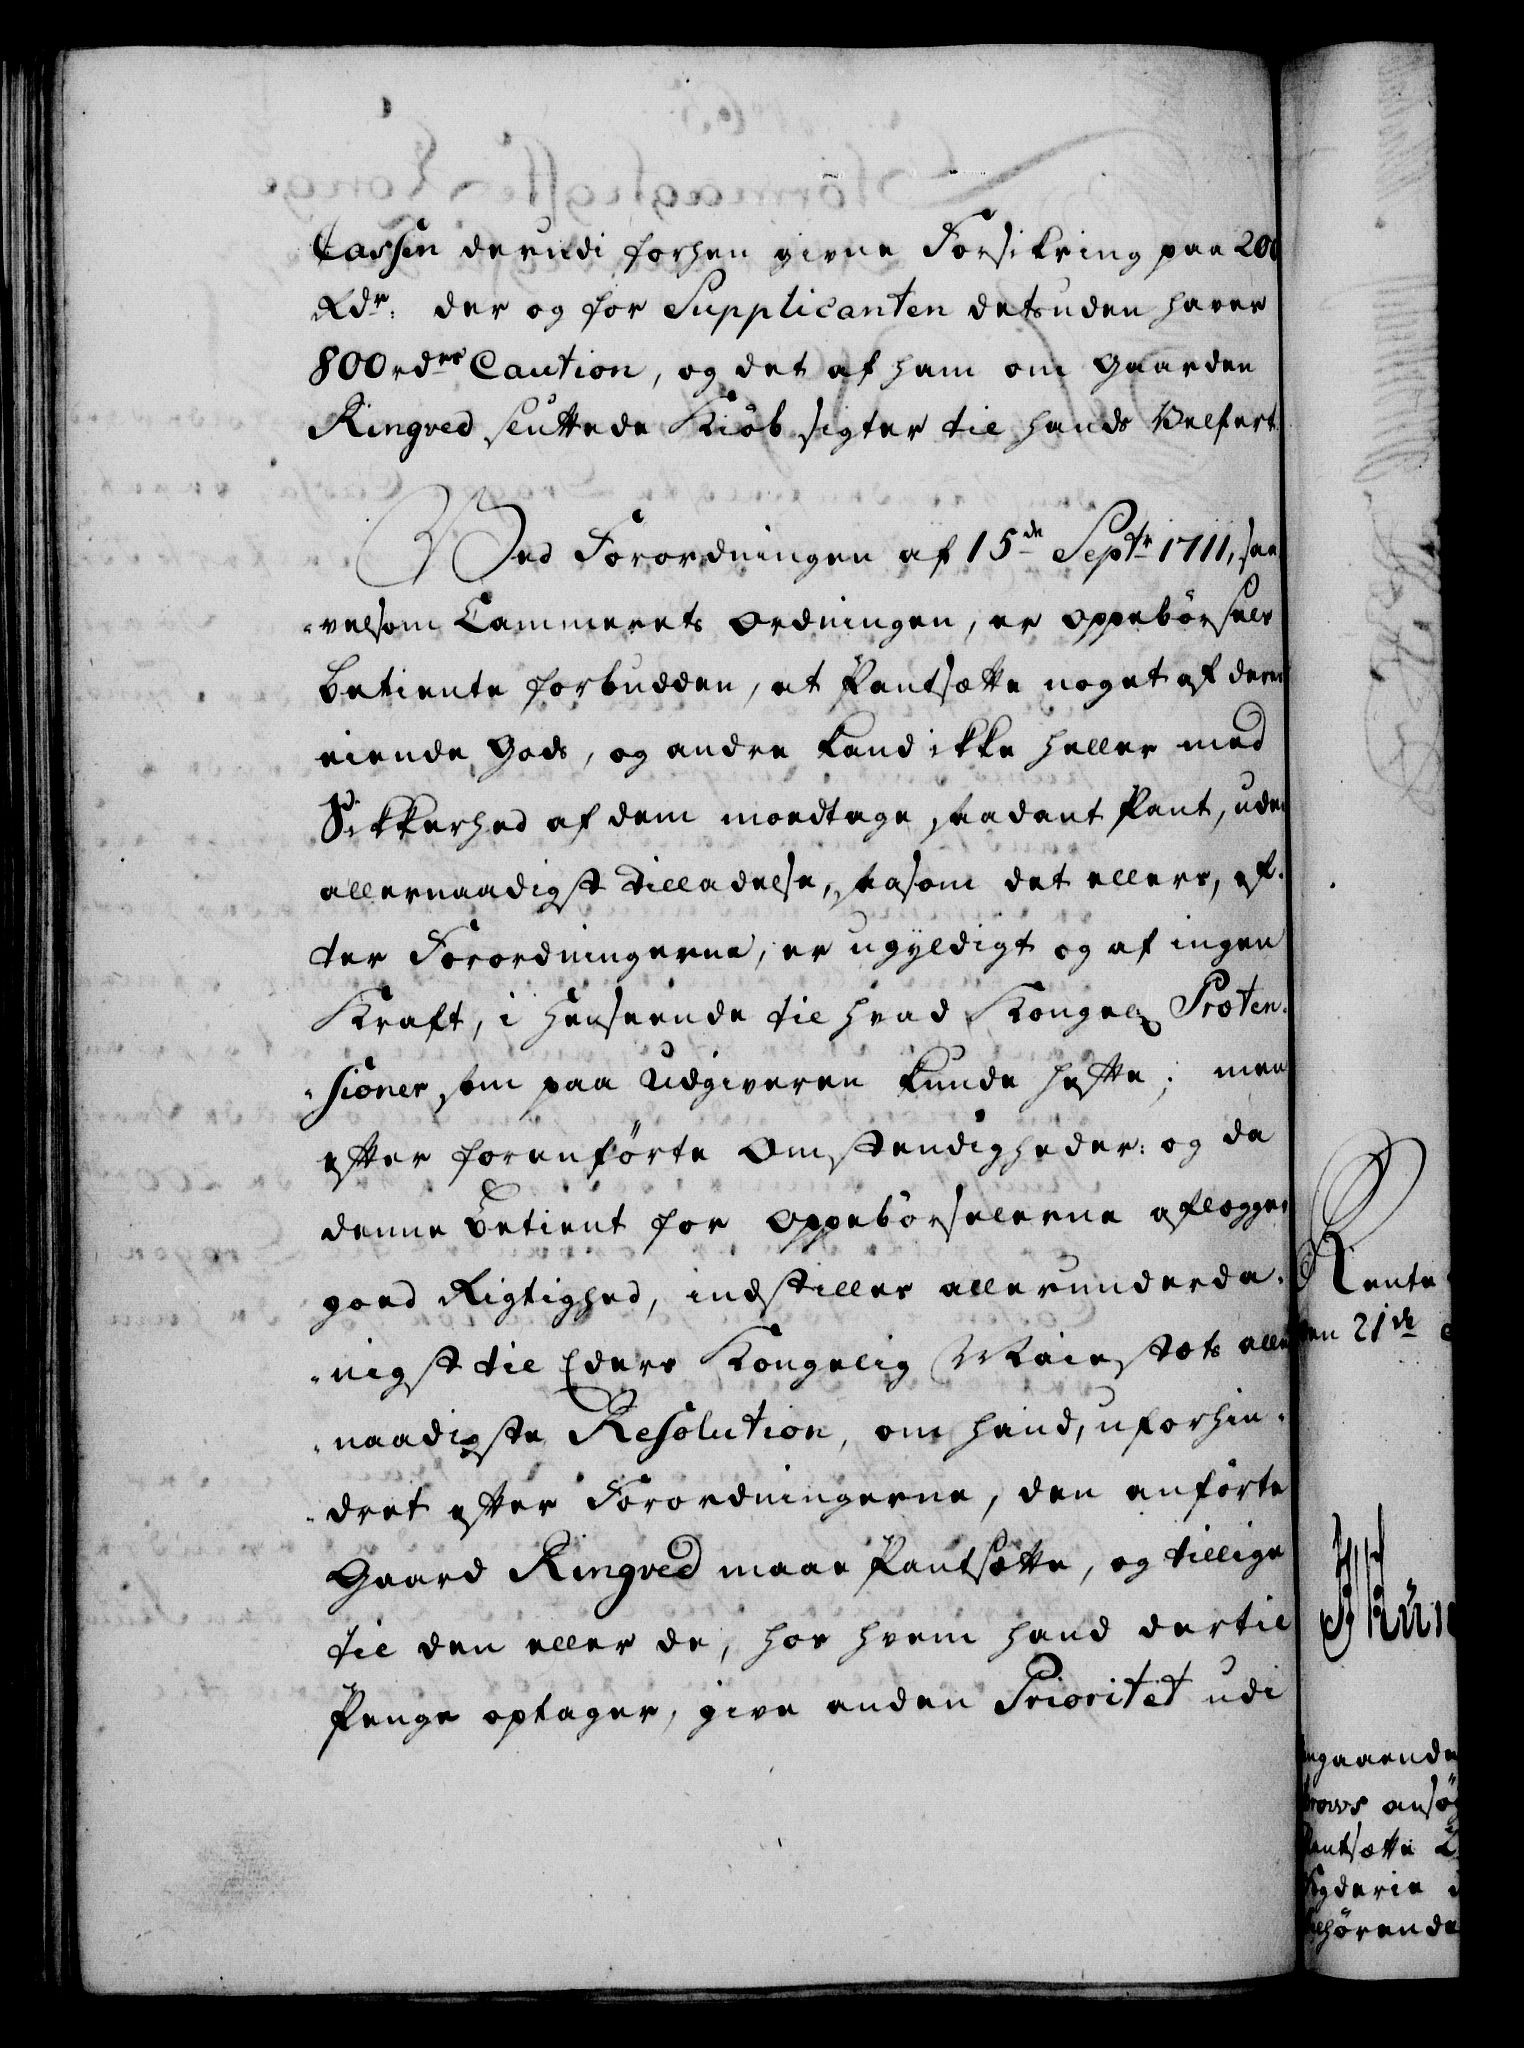 Cassen derudi forhen givne Forsikring paa 200
Rdr: der og for Supplicanten detsuden haver
800 rdrs Caution, og det af ham om Gaarden
Ringved sluttede Kiöb sigter til hands Velfert.
Ved Forordningen af 15de Septr 1711, saa
-velsom Cammerets Ordningen, er Oppebörsels
Betiente forbudden, at Pantsætte noget af deres
eiende Gods, og andre kand ikke heller med
Sikkerhed af dem modtage saadant Pant, uden
allernaadigst Tilladelse, saasom det ellers, ef-
ter Forordningerne, er ugyldigt og af ingen
Kraft, i Henseende til hvad Kongel. Præten-
-sioner som paa Udgiveren kunde hefte; men
efter foranförte Omstendigheder: og da
denne Betient for Oppebörselerne aflægger
goed Rigtighed, indstilles allerunderda-
-nigst til Eders Kongelig Maiestæts aller
-naadigste Resolution, om hand, uforhin-
-dret efter Forordningerne, den anförte
Gaard Ringved maae Pantsætte, og tillige
til den eller de, hos hvem hand dertil
Penge optager, give anden Prioritet udi
Rente
den 21de
gaaende
ansö
Pantsætte
hörende